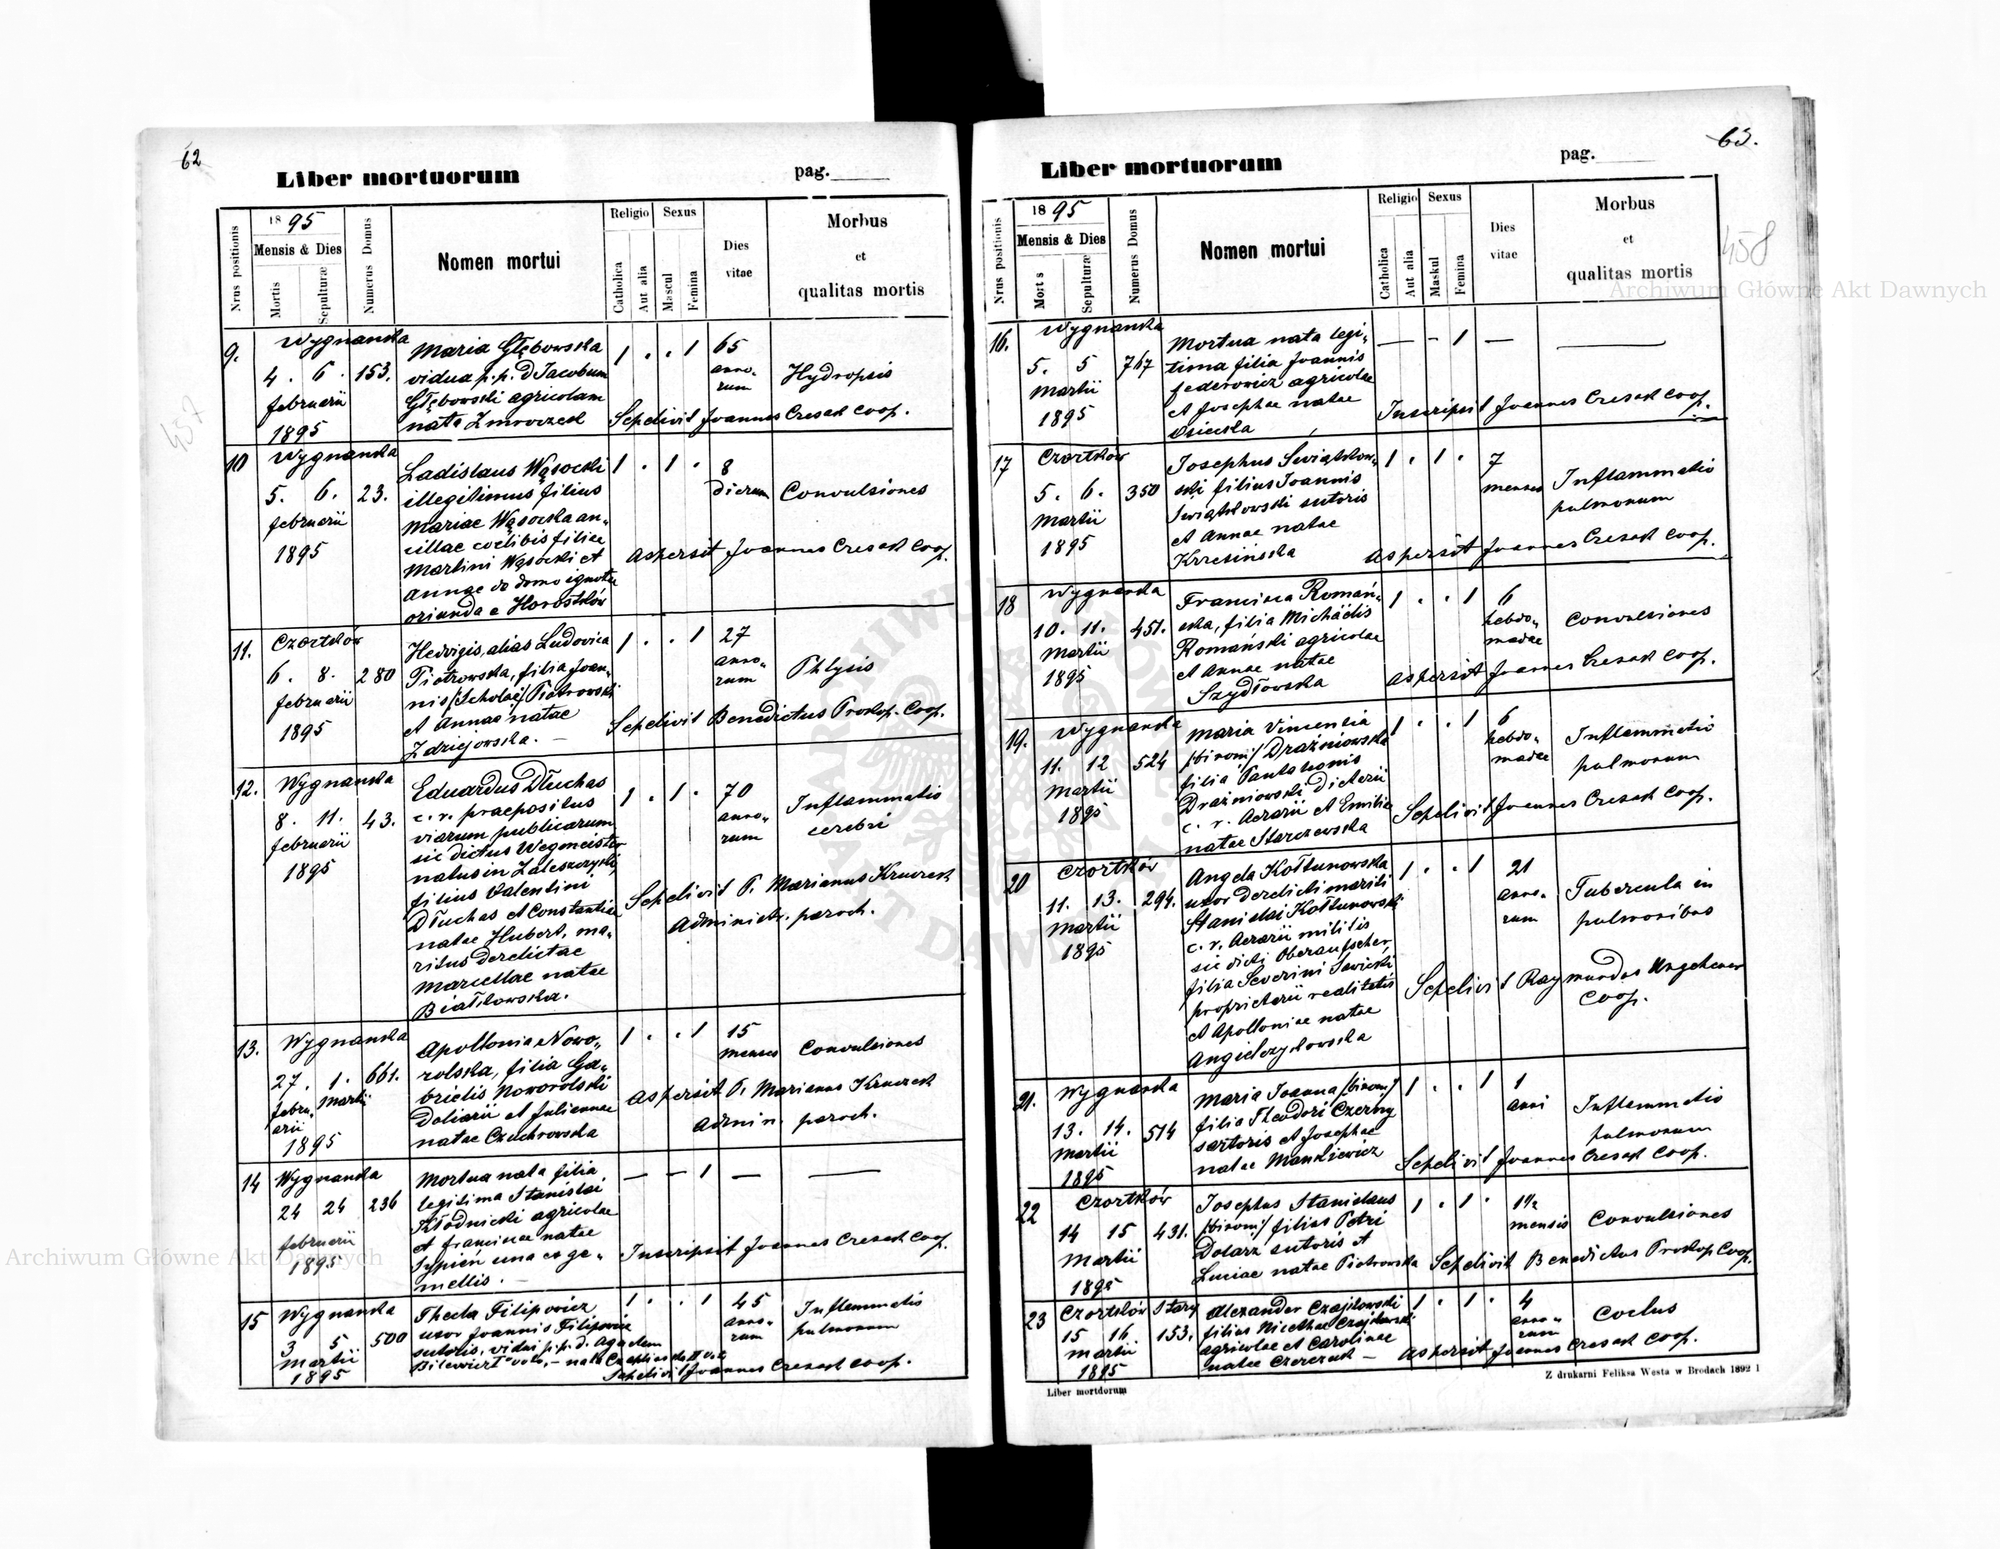 62
Liber mortuorum
pag.
Nrus positionis
1895
Mensis & Dies
Mortis
Sepulturæ
Numerus Domus
Nomen mortui
Religio
Catholica
Aut alia
Sexus
Mascul
Femina
Dies
vitae
Morbus
et
qualitas mortis
457
9.
Wygnanka
4. 6. 153.
februarii
1895
Maria Głębowska
vidua p. p. D Jacobum
Głębowski agricolam
nata Zmroczek
1 . . 1
65
anno-
rum
Hydropsis
Sepelivit Joannes Cresak Coop.
10
Wygnanka
5. 6. 23.
februarii
1895
Ladislaus Wąsocki
illegitimus filius
Mariae Wąsocka an-
cillae coelibis filiae
Martini Wąsocki et
Annae de domo ignota
oriunda e Horostków
1 . 1 .
8
dierum
Convulsiones
Aspersit Joannes Cresak Coop.
11.
Czortków
6. 8. 280
februarii
1895
Hedvigis, alias Ludovica
Piotrowska, filia Joan-
nis (Scholae) Piotrowski
et Annae natae
Zdziejowska. —
1 . . 1
27
anno-
rum
Phtysis
Sepelivit Benedictus Prokop. Coop.
12.
Wygnanka
8. 11. 43.
februarii
1895
Eduardus Dłuchas
c. r. praepositus
viarum publicarum
sic dictus Wegmeister
natus in Zaleszczyki,
filius Valentini
Dłuchas et Constantiae
natae Hubert, ma-
ritus derelictae
Marcellae natae
Białkowska.
1 . 1 .
70
anno-
rum
Inflammatio
cerebri
Sepelivit P. Marianus Kruczek
Administr. paroch.
13.
Wygnanka
27. 1. 661.
febru- Martii
arii
1895
Apollonia Nowo-
rolska, filia Ga-
brielis Noworolski
Doliarii et Juliannae
natae Czuchrowska
1 . . 1
15
menses
Convulsiones
Aspersit P. Marianus Kruczek
Admin. paroch.
14
Wygnanka
24 24 236
februarii
1895
Mortua nata filia
legitima Stanislai
Kłodnicki agricolae
et Franciscae natae
Sypień una ex ge-
mellis. —
— — 1 — —
Inscripsit Joannes Cresak Coop.
15
Wygnanka
3 5 500
Martii
1895
Thecla Filipowicz
uxor Joannis Filipowicz
sutoris, vidui p. p. d. Agathem
1 . . 1
45
anno-
rum
Inflammatio
pulmonum
Sepelivit Joannes Cresak Coop.
63.
Liber mortuorum
pag.
Nrus positionis
1895
Mensis & Dies
Mort s
Sepulturæ
Numerus Domus
Nomen mortui
Religio
Catholica
Aut alia
Sexus
Maskul
Femina
Dies
vitae
Morbus
et
qualitas mortis
458
16.
Wygnanka
5. 5 767
Martii
1895
Mortua nata legi-
tima filia Joannis
Federowicz agricolae
et Josephae natae
— - 1 — —
Inscripsit Joannes Cresak Coop.
17
Czortków
5. 6. 350
Martii
1895
Josephus Świątkow-
ski filius Joannis
Świątkowski sutoris
et Annae natae
Krzesińska
1 . 1 .
7
menses
Inflammatio
pulmonum
Aspersit Joannes Cresak Coop.
18
Wygnanka
10. 11. 451.
Martii
1895
Francisca Román-
ska, filia Michaëlis
Romański agricolae
et Annae natae
Szydłowska
1 . . 1
6
hebdo-
madae
Convulsiones
Aspersit Joannes Cresak Coop.
19.
Wygnanka
11. 12 524
Martii
1895
Maria Vincentia
(binom) Drażniowska
filia Pantaleonis
Drażniowski Dietarii
c. r. Aerarii et Emilia
natae Starczewska
1 . . 1
6
hebdo-
madae
Inflammatio
pulmonum
Sepelivit Joannes Cresak Coop.
20
Czortków
11. 13. 294.
Martii
1895
Angela Kołtunowska
uxor derelicti mariti
Stanislai Kołtunowski
c. r. Aerarii militis
sic dicti Oberaufseher
filia Severini Sawicki
proprietarii realitatis
et Apolloniae natae
Angielczykowska
1 . . 1
21
anno-
rum
Tubercula in
pulmonibus
Sepelivit Raymundus Ungeheuer
Coop.
21.
Wygnanka
13. 14. 514
Martii
1895
Maria Joanna (binom)
filia Theodori Czerny
sartoris et Josephae
natae Mankiewicz
1 . . 1
1
anni
Inflammatio
pulmonum
Sepelivit Joannes Cresak Coop.
22
Czortków
14 15 431.
Martii
1895
Josephus Stanislaus
(binom) filius Petri
Dolarz sutoris et
Luciae natae Piotrowska
1 . 1 .
1½
mensis
Convulsiones
Sepelivit Benedictus Prokop Coop.
23
Czortków Stary
15 16 153.
Martii
1895
Alexander Czajkowski
filius Nicethae Czajkowski
agricolae et Carolinae
natae Czerczuk —
1 . 1 .
4
anno-
rum
Coctus
Aspersit Joannes Cresak Coop.
Liber mortdorum
Z drukarni Feliksa Westa w Brodach 1892 1
Archiwum Główne Akt Dawnych
Archiwum Główne Akt Dawnych